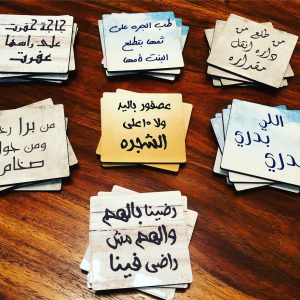 جاجة حفرت
على راسها
عفرت
طب الجره على
ثمها بتطلع
البنت لأمها
من طلع من
داره اتقل
مقداره
من برا رخا
ومن جوا
صخام
عصفور باليد
ولا ١٠ اعلى
الشجره
اللي
بدري
بدري
رضينا بالهم
والهم مش
راضي فينا